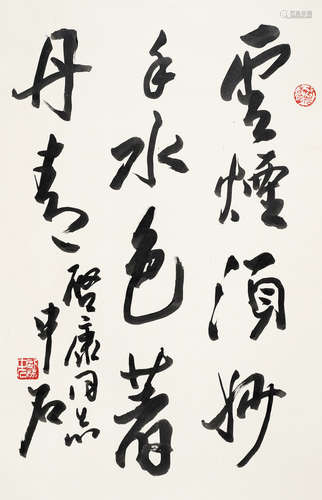 雲煙須妙
手水色著
丹青
啓康同志
中石